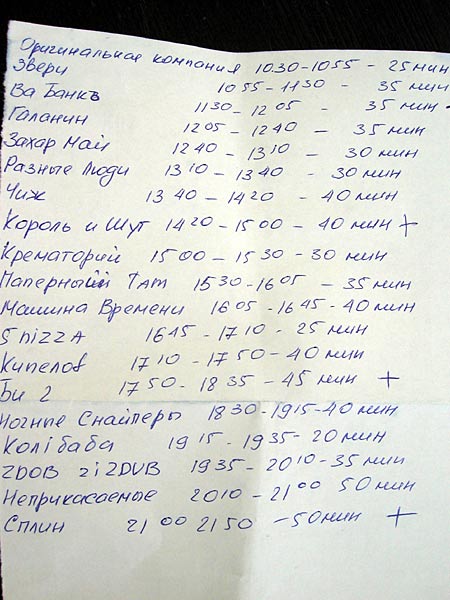 Оригинальная компания 10 30-10 55 - 25 мин
Звери 10 55 - 11 30 - 35 мин
Ва Банкъ 11 30 - 12 05 - 35 мин
Галанин 12 05 - 12 40 - 35 мин
Захар Май 12 40 - 13 10 - 30 мин
Разные Люди 13 10 - 13 40 - 30 мин
Чиж 13 40 - 14 20 - 40 мин
Король и Шут 14 20 - 15 00 - 40 мин +
Крематорий 15 00 - 15 30 - 30 мин
Паперный Tam 15 30-16 05 - 35 мин
Машина Времени 16 05 - 16 45 - 40 мин
5 nizzA 16 45 - 17 10 - 25 мин
Кипелов 17 10 - 17 50 - 40 мин
Би 2 17 50 - 18 35 - 45 мин +
Ночные Снайперы 18 30-19 15-40 мин
Колiбаба 19 15 - 19 35 - 20 мин
ZDOB zi ZDUB 19 35 - 20 10 - 35 мин
Неприкасаемые 20 10 - 21 00 50 мин
Сплин 21 00 21 50 - 50 мин +